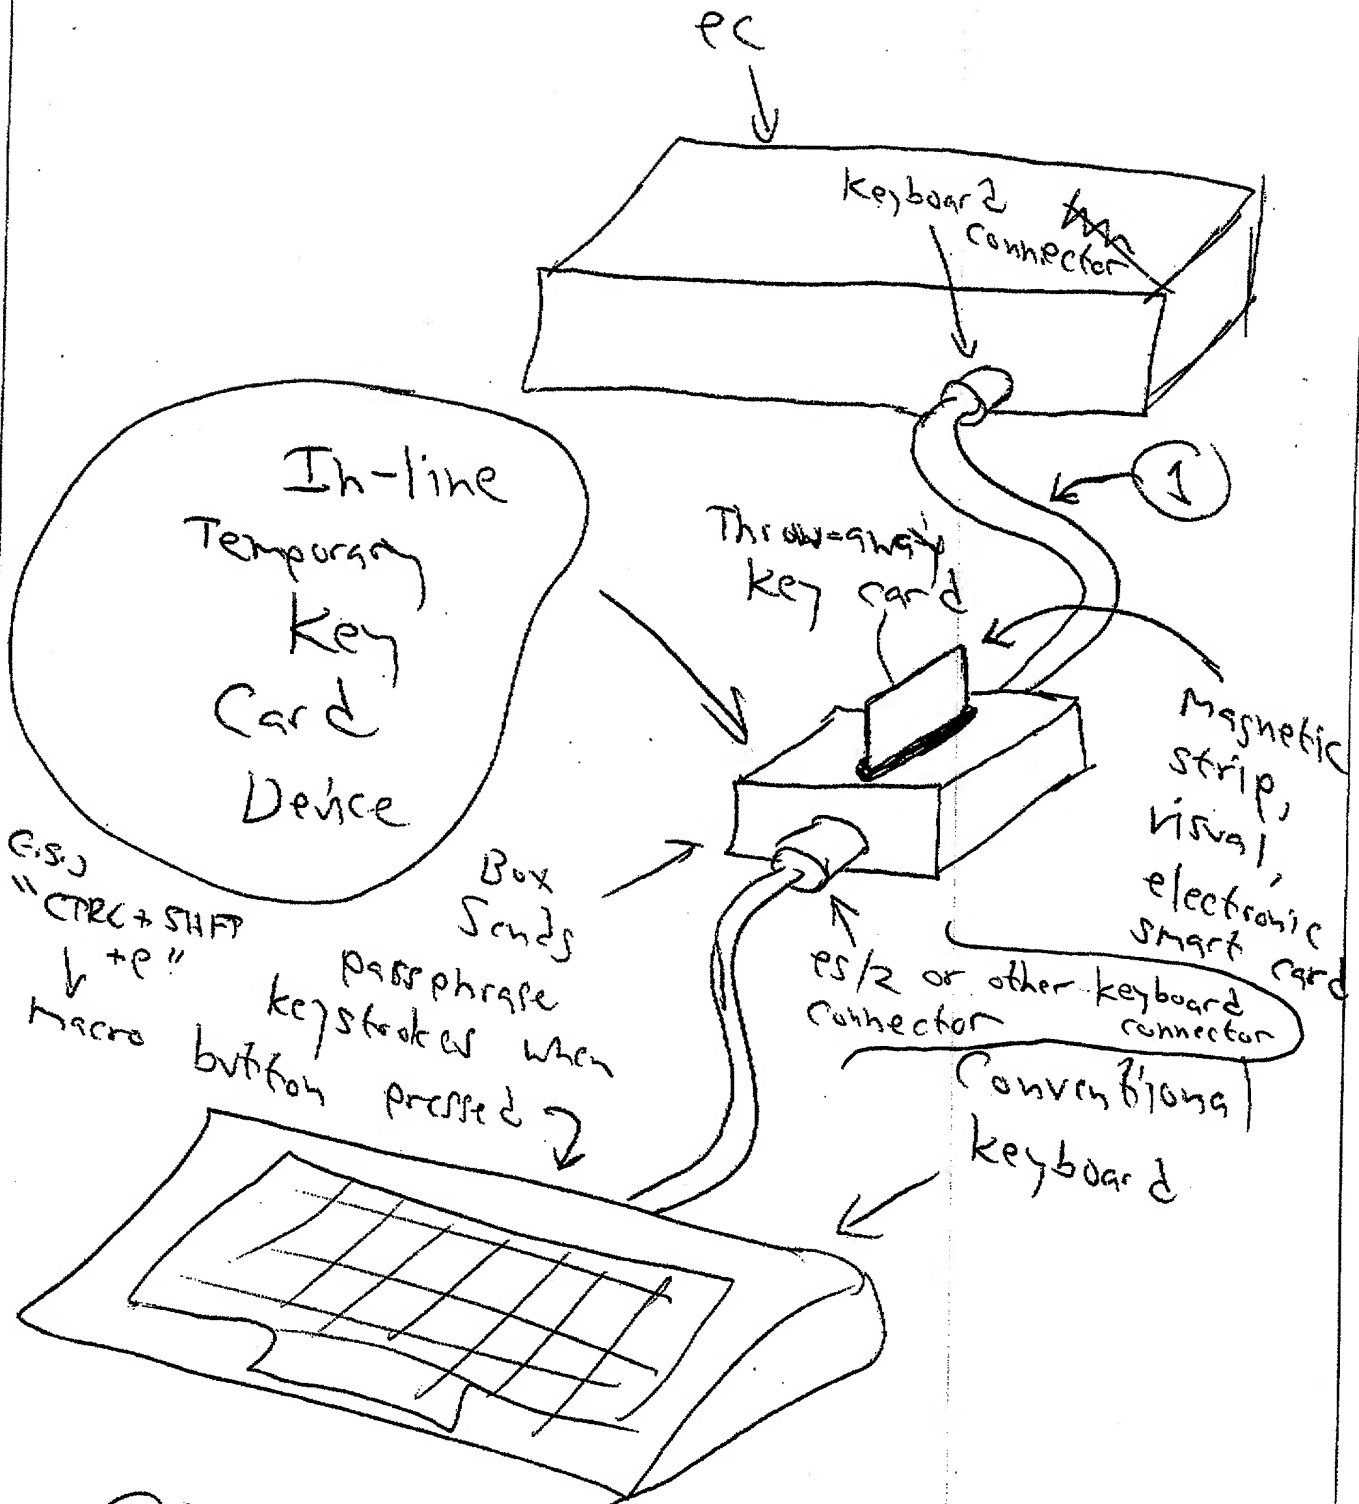 PC
Keyboard
connector
1
In-line
Temporary
Key
Card
Device
Throw-away
key card
Magnetic
strip,
visual,
electronic
smart card
E.g.,
"CTRL + SHFT
+P"
Box
Sends
passphrase
keystrokes when
macro button pressed
PS/2 or other keyboard
connector connector
Conventional
keyboard